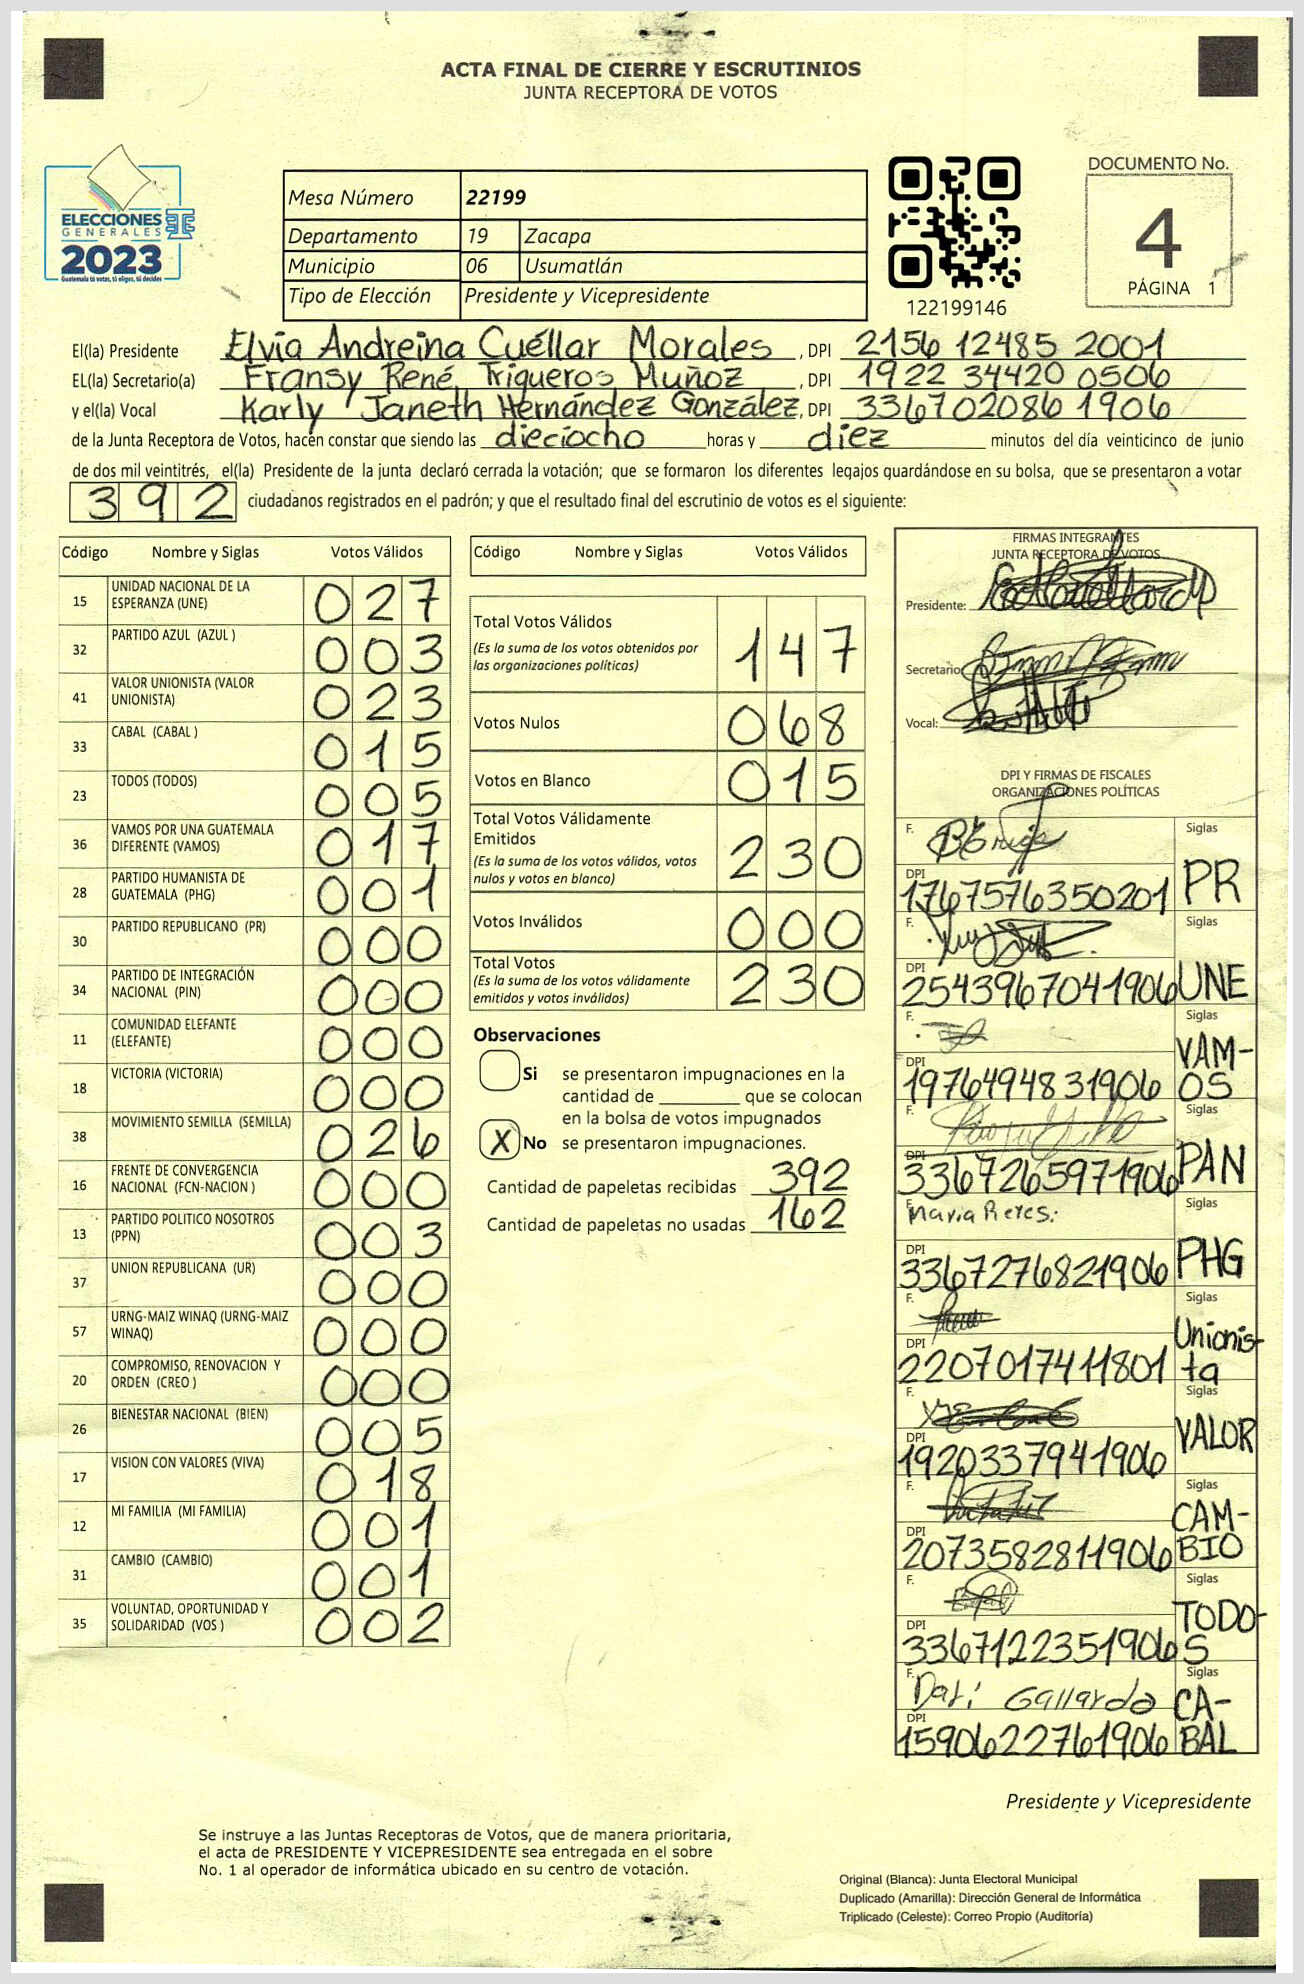 ACTA FINAL DE CIERRE Y ESCRUTINIOS
JUNTA RECEPTORA DE VOTOS
ELECCIONES
GENERALES
2023
Guatemala tú votas, tú eliges, tú decides
Mesa Número 22199
Departamento 19 Zacapa
Municipio 06 Usumatlán
Tipo de Elección Presidente y Vicepresidente
122199146
DOCUMENTO No.
4
PÁGINA 1
El(la) Presidente Elvia Andreina Cuéllar Morales, DPI 2156 12485 2001
EL(la) Secretario(a) Fransy René Trigueros Muñoz, DPI 1922 34420 0506
y el(la) Vocal Karly Janeth Hernández González, DPI 336702086 1906
de la Junta Receptora de Votos, hacen constar que siendo las dieciocho horas y diez minutos del día veinticinco de junio
de dos mil veintitrés, el(la) Presidente de la junta declaró cerrada la votación; que se formaron los diferentes legajos guardándose en su bolsa, que se presentaron a votar
392 ciudadanos registrados en el padrón; y que el resultado final del escrutinio de votos es el siguiente:
Código Nombre y Siglas Votos Válidos
15 UNIDAD NACIONAL DE LA ESPERANZA (UNE) 027
32 PARTIDO AZUL (AZUL ) 003
41 VALOR UNIONISTA (VALOR UNIONISTA) 023
33 CABAL (CABAL ) 015
23 TODOS (TODOS) 005
36 VAMOS POR UNA GUATEMALA DIFERENTE (VAMOS) 017
28 PARTIDO HUMANISTA DE GUATEMALA (PHG) 001
30 PARTIDO REPUBLICANO (PR) 000
34 PARTIDO DE INTEGRACIÓN NACIONAL (PIN) 000
11 COMUNIDAD ELEFANTE (ELEFANTE) 000
18 VICTORIA (VICTORIA) 000
38 MOVIMIENTO SEMILLA (SEMILLA) 026
16 FRENTE DE CONVERGENCIA NACIONAL (FCN-NACION ) 000
13 PARTIDO POLITICO NOSOTROS (PPN) 003
37 UNION REPUBLICANA (UR) 000
57 URNG-MAIZ WINAQ (URNG-MAIZ WINAQ) 000
20 COMPROMISO, RENOVACION Y ORDEN (CREO ) 000
26 BIENESTAR NACIONAL (BIEN) 005
17 VISION CON VALORES (VIVA) 018
12 MI FAMILIA (MI FAMILIA) 001
31 CAMBIO (CAMBIO) 001
35 VOLUNTAD, OPORTUNIDAD Y SOLIDARIDAD (VOS ) 002
Código Nombre y Siglas Votos Válidos
Total Votos Válidos 147
(Es la suma de los votos obtenidos por
las organizaciones políticas)
Votos Nulos 068
Votos en Blanco 015
Total Votos Válidamente
Emitidos 230
(Es la suma de los votos válidos, votos
nulos y votos en blanco)
Votos Inválidos 000
Total Votos 230
(Es la suma de los votos válidamente
emitidos y votos inválidos)
Observaciones
Si se presentaron impugnaciones en la
cantidad de ________ que se colocan
en la bolsa de votos impugnados
X No se presentaron impugnaciones.
Cantidad de papeletas recibidas 392
Cantidad de papeletas no usadas 162
FIRMAS INTEGRANTES
JUNTA RECEPTORA DE VOTOS
Presidente:
Secretario
Vocal:
DPI Y FIRMAS DE FISCALES
ORGANIZACIONES POLÍTICAS
F. Siglas
DPI 1767576350201 PR
F. Siglas
DPI 2543967041906 UNE
F. Siglas
DPI 1976494831906 VAM-OS
F. Siglas
DPI 3367265971906 PAN
F. Maria Reyes. Siglas
DPI 3367276821906 PHG
F. Siglas
DPI 2207017411801 Unionis-ta
F. Siglas
DPI 1920337941906 VALOR
F. Siglas
DPI 2073582811906 CAM-BIO
F. Siglas
DPI 3367122351906 TODO-S
F. Dari Gallardo Siglas
DPI 1590622761906 CA-BAL
Presidente y Vicepresidente
Se instruye a las Juntas Receptoras de Votos, que de manera prioritaria,
el acta de PRESIDENTE Y VICEPRESIDENTE sea entregada en el sobre
No. 1 al operador de informática ubicado en su centro de votación.
Original (Blanca): Junta Electoral Municipal
Duplicado (Amarilla): Dirección General de Informática
Triplicado (Celeste): Correo Propio (Auditoría)